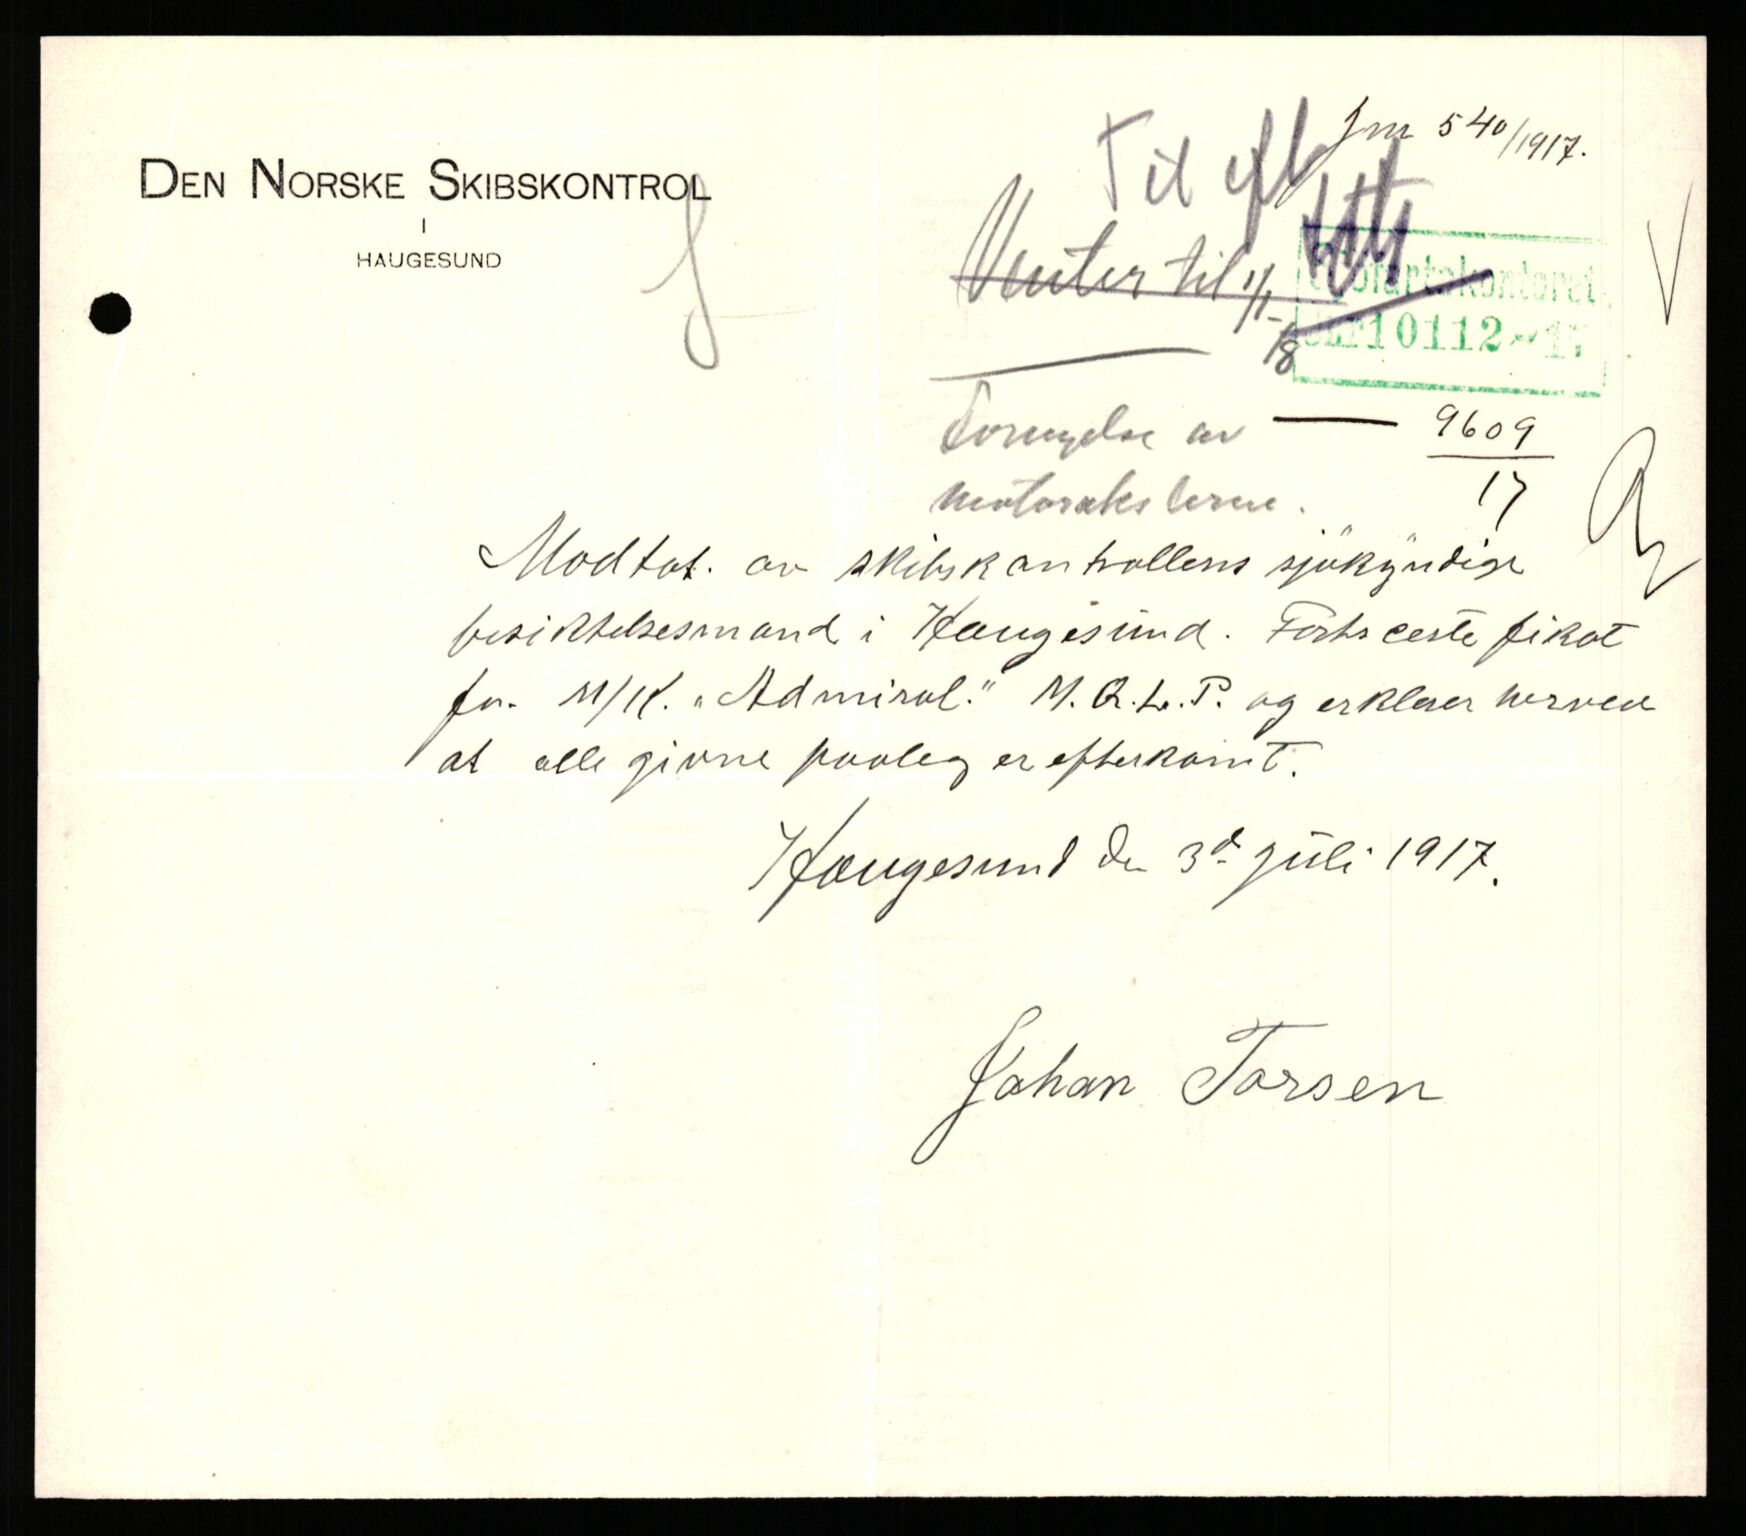 DEN NORSKE SKIBSKONTROL
I
HAUGESUND
Jm 540/1917.
Til efl
Venter til 1/1-18
Sjøfartskontoret
Jnr 10112 - 17
Fornyelse av — 9609
motorakslerne. 17
Modtat. av skibskontrollens sjökyndige
besiktelsesmand i Haugesund. Farts certifikat
for. M/K. „Admiral." M.Q.L.P. og erklærer herved
at alle givne paaleg er efterkomt.
Haugesund den 3d juli 1917.
Johan Torsen